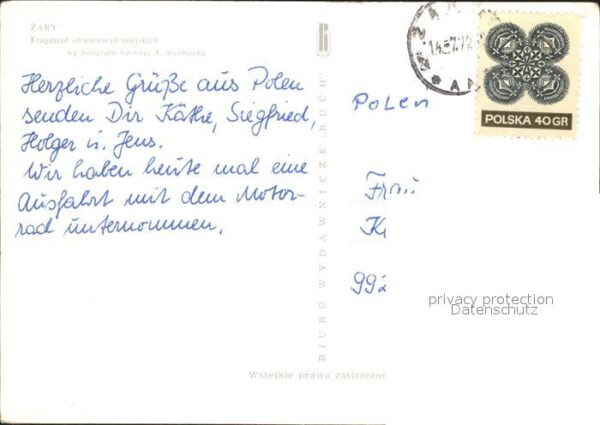 ŻARY
Fragment obwarowań miejskich
wg fotografii barwnej A. Stelmacha
Herzliche Grüße aus Polen
senden Dir Käthe, Siegfried,
Holger u. Jens.
Wir haben heute mal eine
Ausfahrt mit dem Motor-
rad unternommen.
BIURO WYDAWNICZE „RUCH”
Wszelkie prawa zastrzeżon
POLSKA 40 GR
Polen
Frau
K
992
privacy protection
Datenschutz